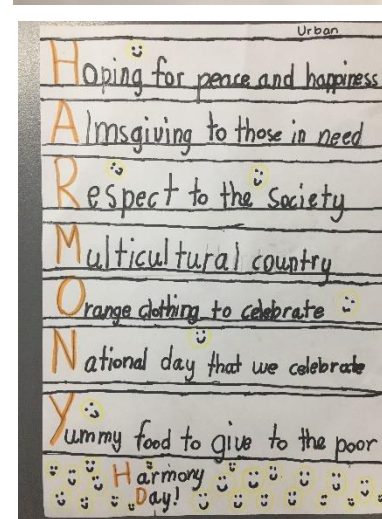 Urban
Hoping for peace and happiness
Almsgiving to those in need
Respect to the Society
Multicultural country
Orange clothing to celebrate
National day that we celebrate
Yummy food to give to the poor
Harmony
Day!